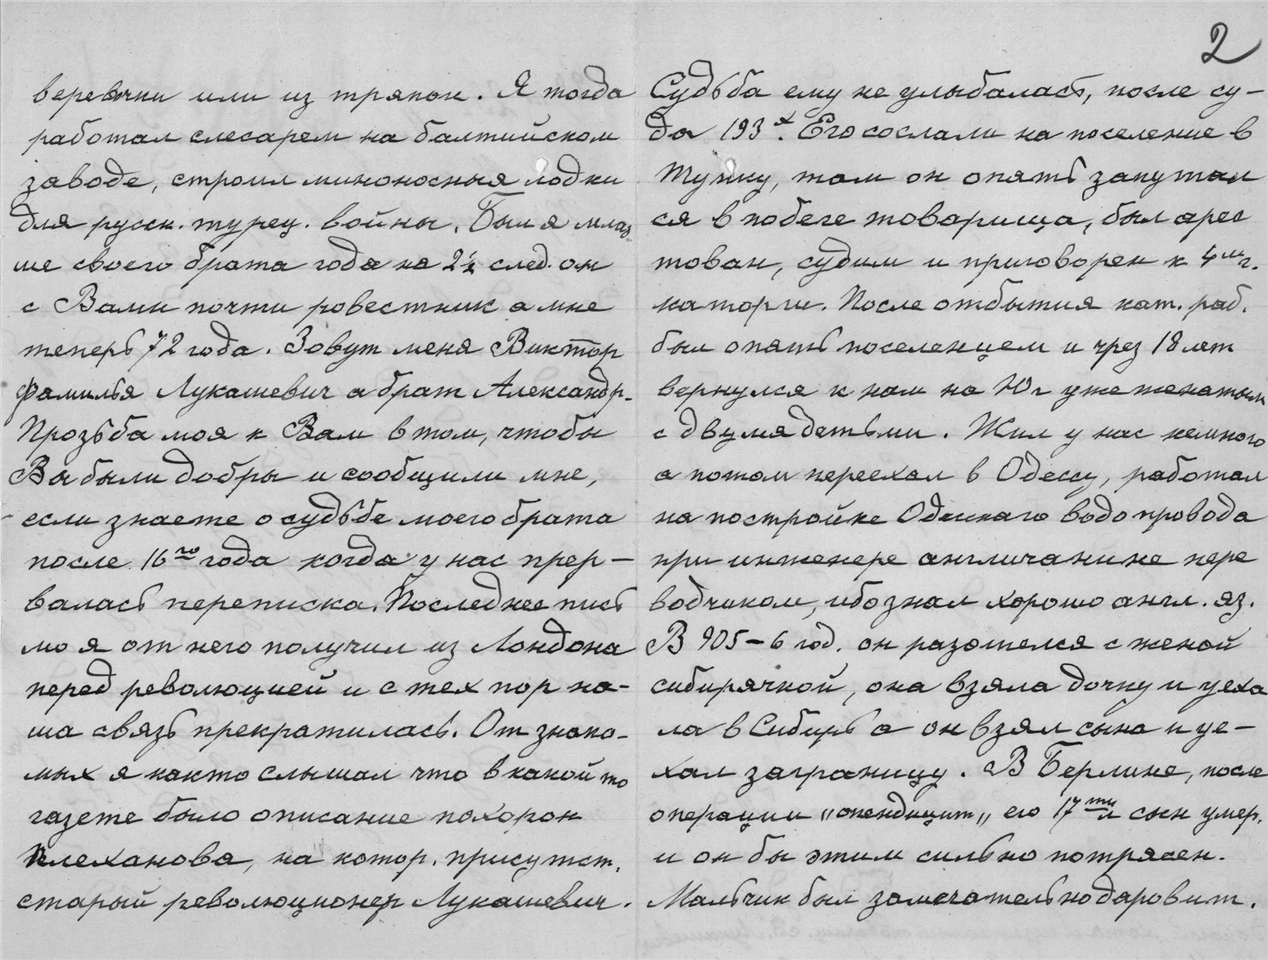 2
веревочки или из тряпок. Я тогда
работал слесарем на балтийском
заводе, строил миноносныя лодки
для русск. турец. войны. Был я млад-
ше своего брата года на 2½ след. он
с Вами почти ровестник а мне
теперь 72 года. Зовут меня Виктор
фамилья Лукашевич а брат Александр.
Прозьба моя к Вам в том, чтобы
Вы были добры и сообщили мне,
если знаете о судьбе моего брата
после 16го года когда у нас прер-
валась переписка. Последнее пись
мо я от него получил из Лондона
перед революцией и с тех пор на-
ша связь прекратилась. От знако-
мых я както слышал что в какой то
газете было описание похорон
Плеханова, на котор. присутст.
старый революционер Лукашевич.
Судьба ему не улыбалась, после су-
да 193х. Его сослали на поселение в
там он опять запутал
ся в побеге товарища, был арес
тован, судим и приговорен к 4м г.
каторги. После отбытия кат. раб.
был опять поселенцем и чрез 18 лет
вернулся к нам на Юг уже женатым
с двумя детьми. Жил у нас немного
а потом переехал в Одессу, работал
на постройке Одесскаго водопровода
при инженере англичанине пере
водчиком, ибо знал хорошо англ. яз.
В 905-6 год. он разошелся с женой
сибирячкой, она взяла дочку и уеха
ла в Сибирь а он взял сына и уе-
хал заграницу. В Берлине, после
операции „апендицит„ его 17ти л сын умер.
и он бы этим сильно потрясен.
Мальчик был замечательно даровит.